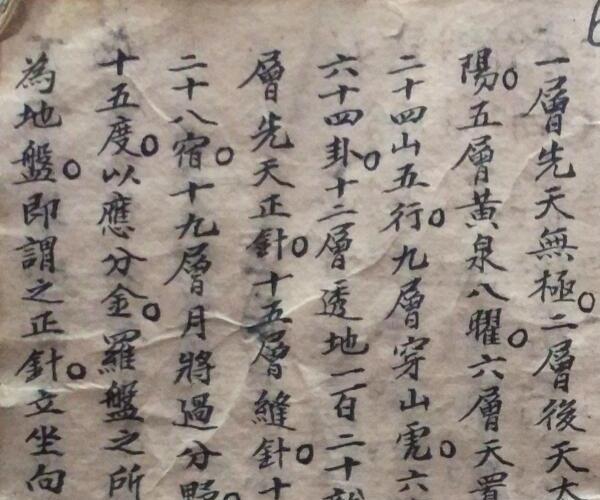 一層先天無極。二層後天太
陽。五層黃泉八曜。六層天
二十四山五行。九層穿山虎。六
六十四卦。十二層透地一百二十
層先天正針。十五層縫針。十
二十八宿。十九層月將過分野。
十五度。以應分金。羅盤之所
為地盤。即謂之正針。立坐向